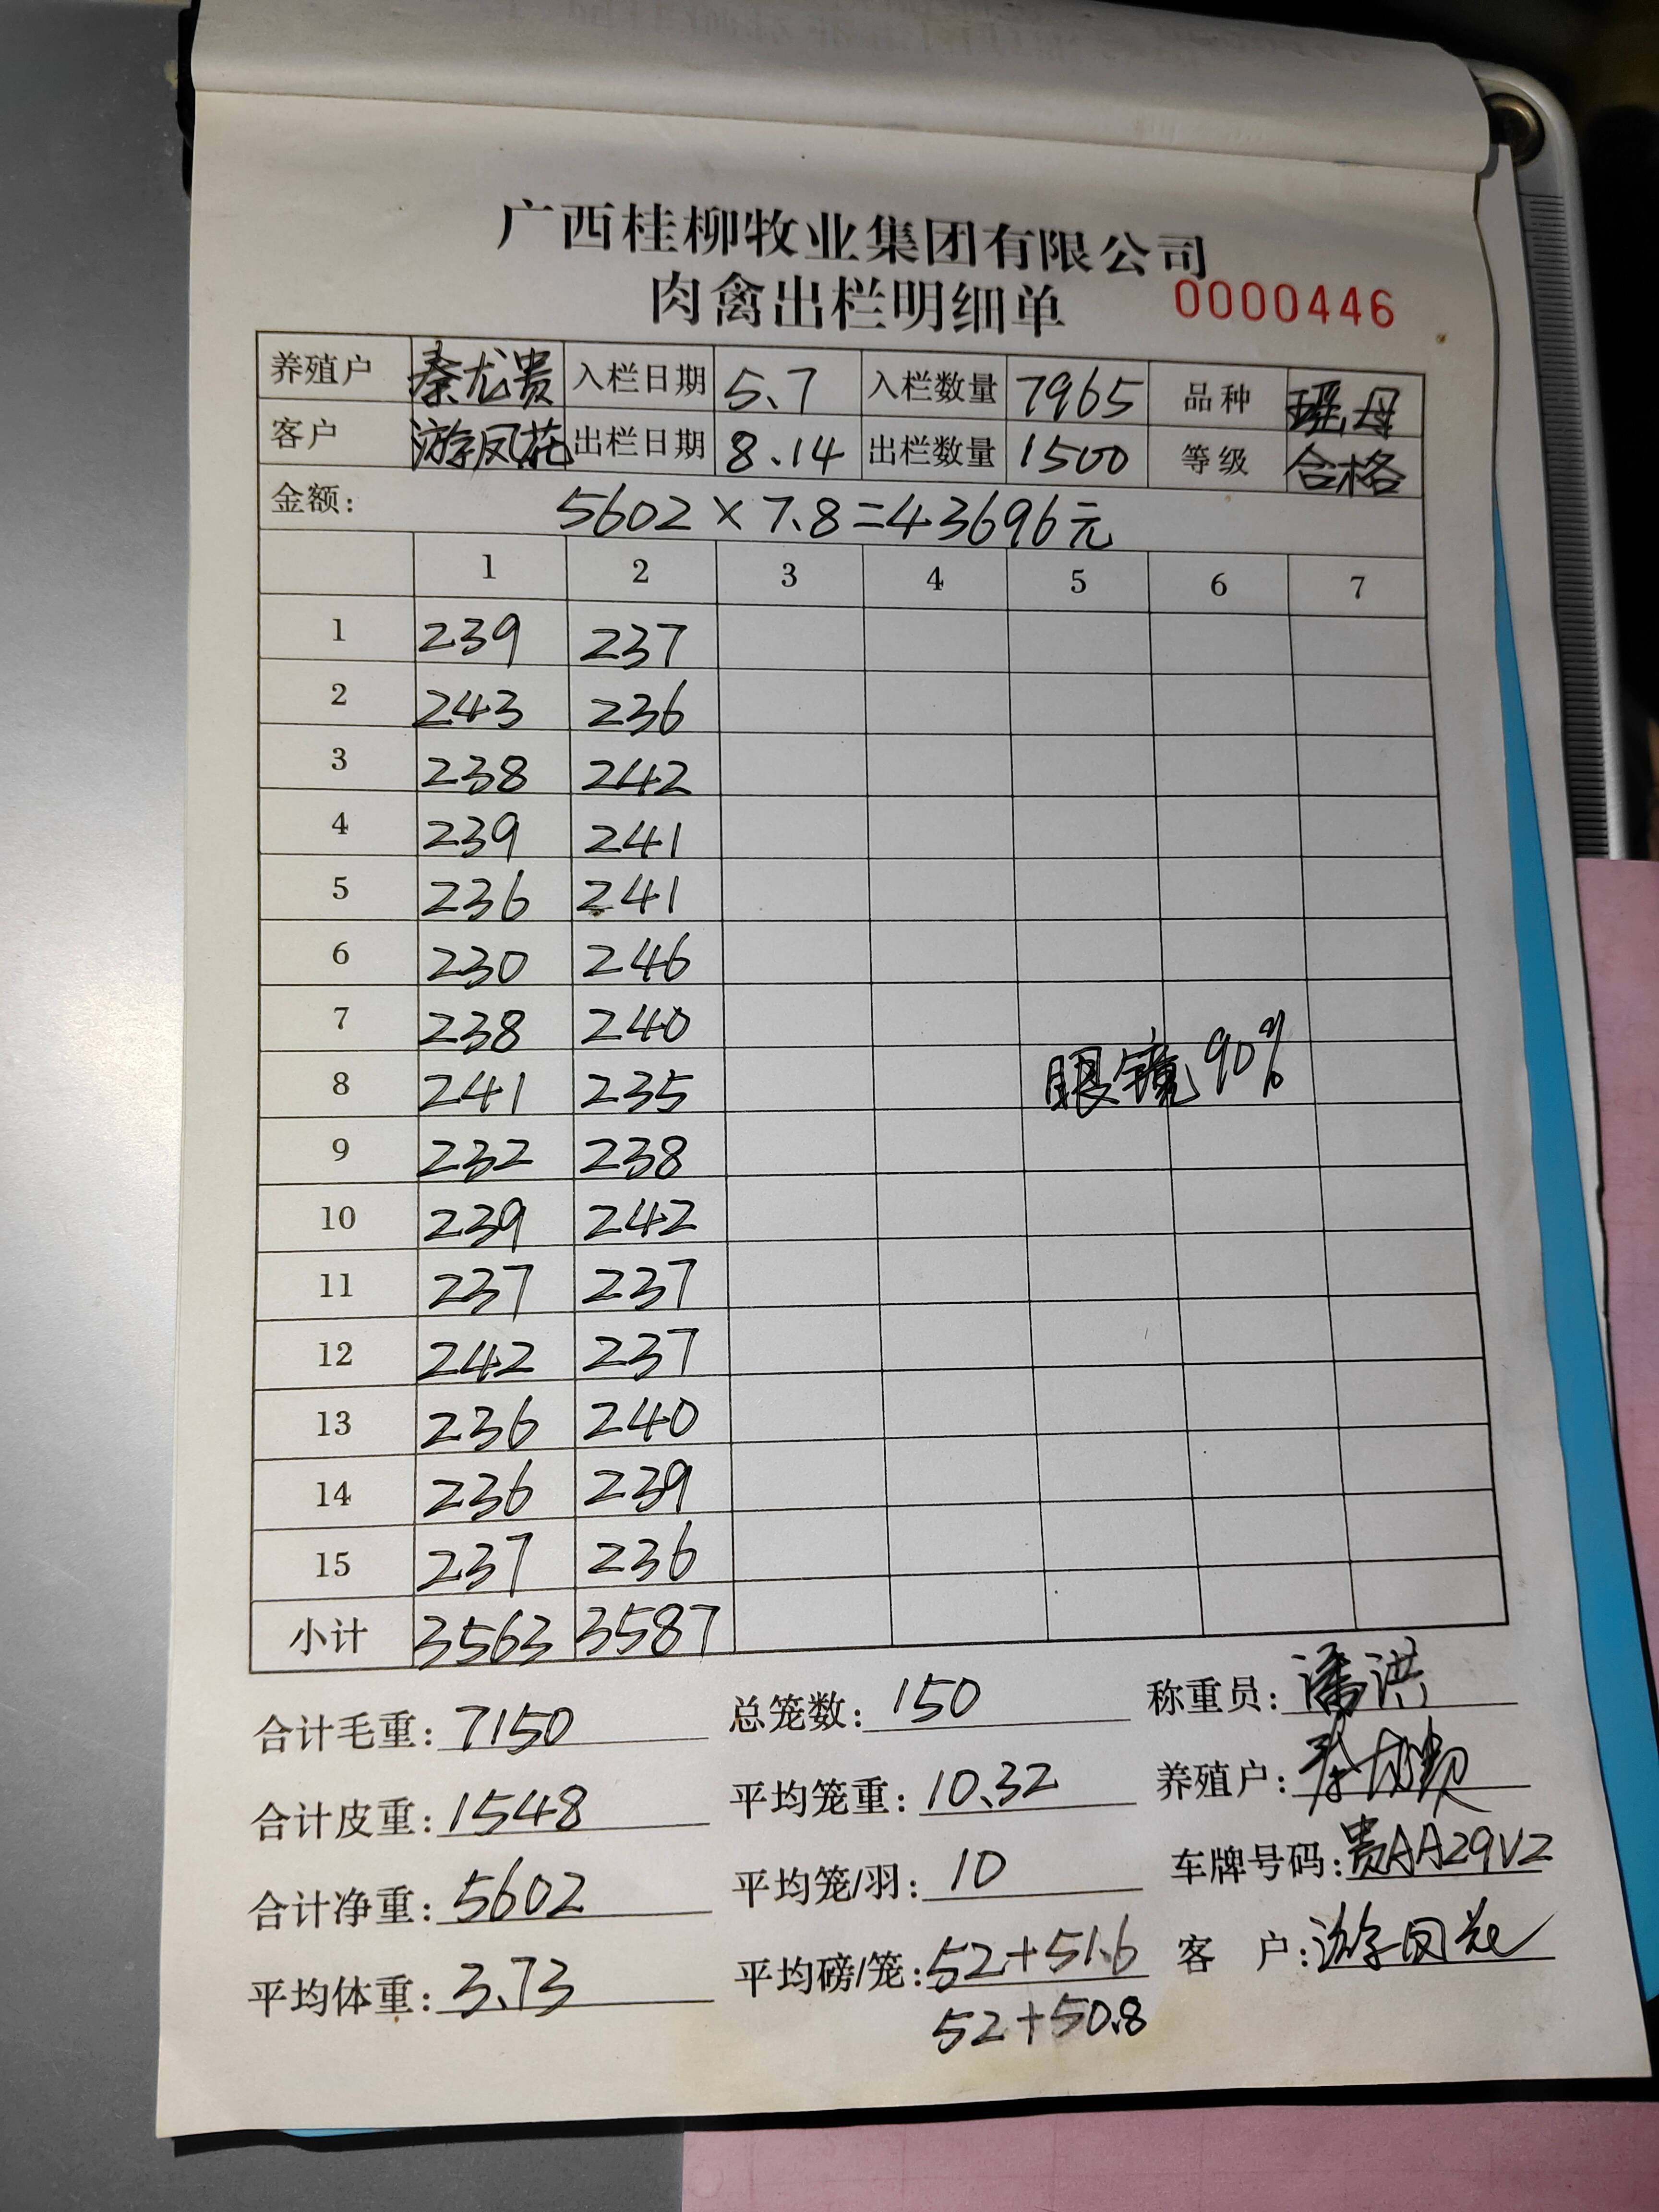 广西桂柳牧业集团有限公司
肉禽出栏明细单 0000446
养殖户 秦尤贵 入栏日期 5.7 入栏数量 7965 品种 瑶母
客户 游凤花 出栏日期 8.14 出栏数量 1500 等级 合格
金额: 5602×7.8=43696元
1 2 3 4 5 6 7
1 239 237
2 243 236
3 238 242
4 239 241
5 236 241
6 230 246
7 238 240
8 241 235 眼镜90%
9 232 238
10 239 242
11 237 237
12 242 237
13 236 240
14 236 239
15 237 236
小计 3563 3587
合计毛重: 7150 总笼数: 150 称重员: 潘洪
合计皮重: 1548 平均笼重: 10.32 养殖户:
合计净重: 5602 平均笼/羽: 10 车牌号码: 贵AA29V2
平均体重: 3.73 平均磅/笼: 52+51.6 客 户: 游凤花
52+50.8